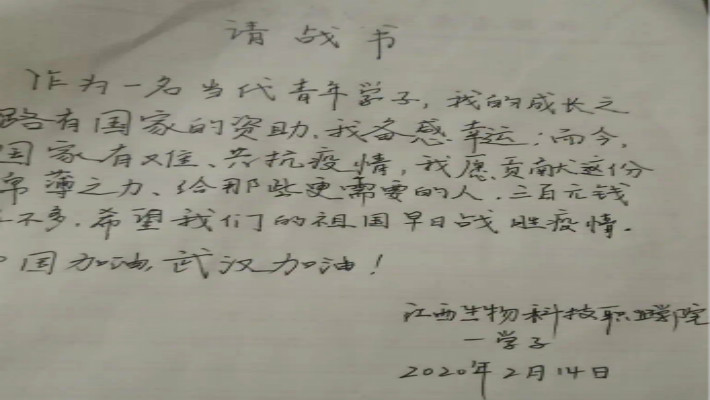 请战书
作为一名当代青年学子，我的成长之
路有国家的资助，我备感幸运；而今，
国家有难、共抗疫情，我愿贡献这份
绵薄之力、给那些更需要的人，三百元钱
不多，希望我们的祖国早日战胜疫情。
国加油，武汉加油！
江西生物科技职业学院
一学子
2020年2月14日